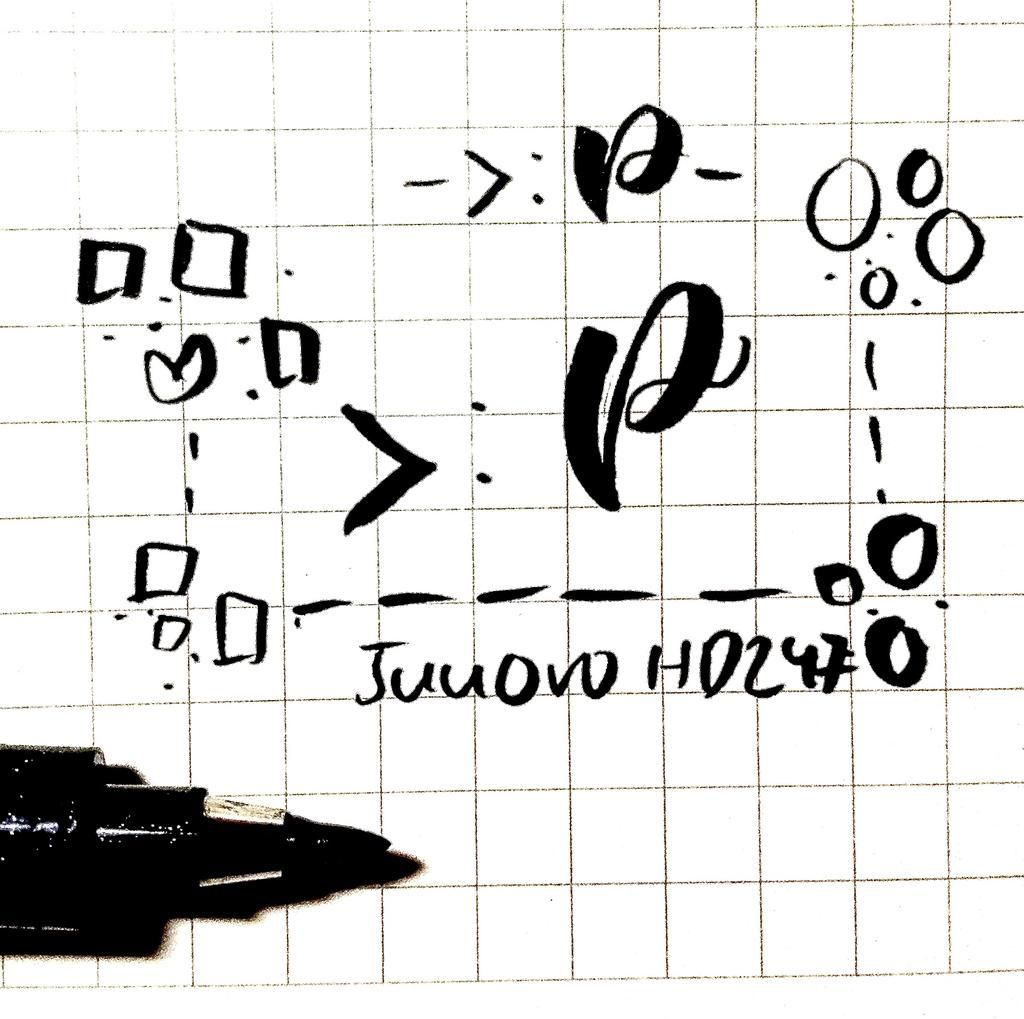 ->:p-
>:p
Juuovo HD247